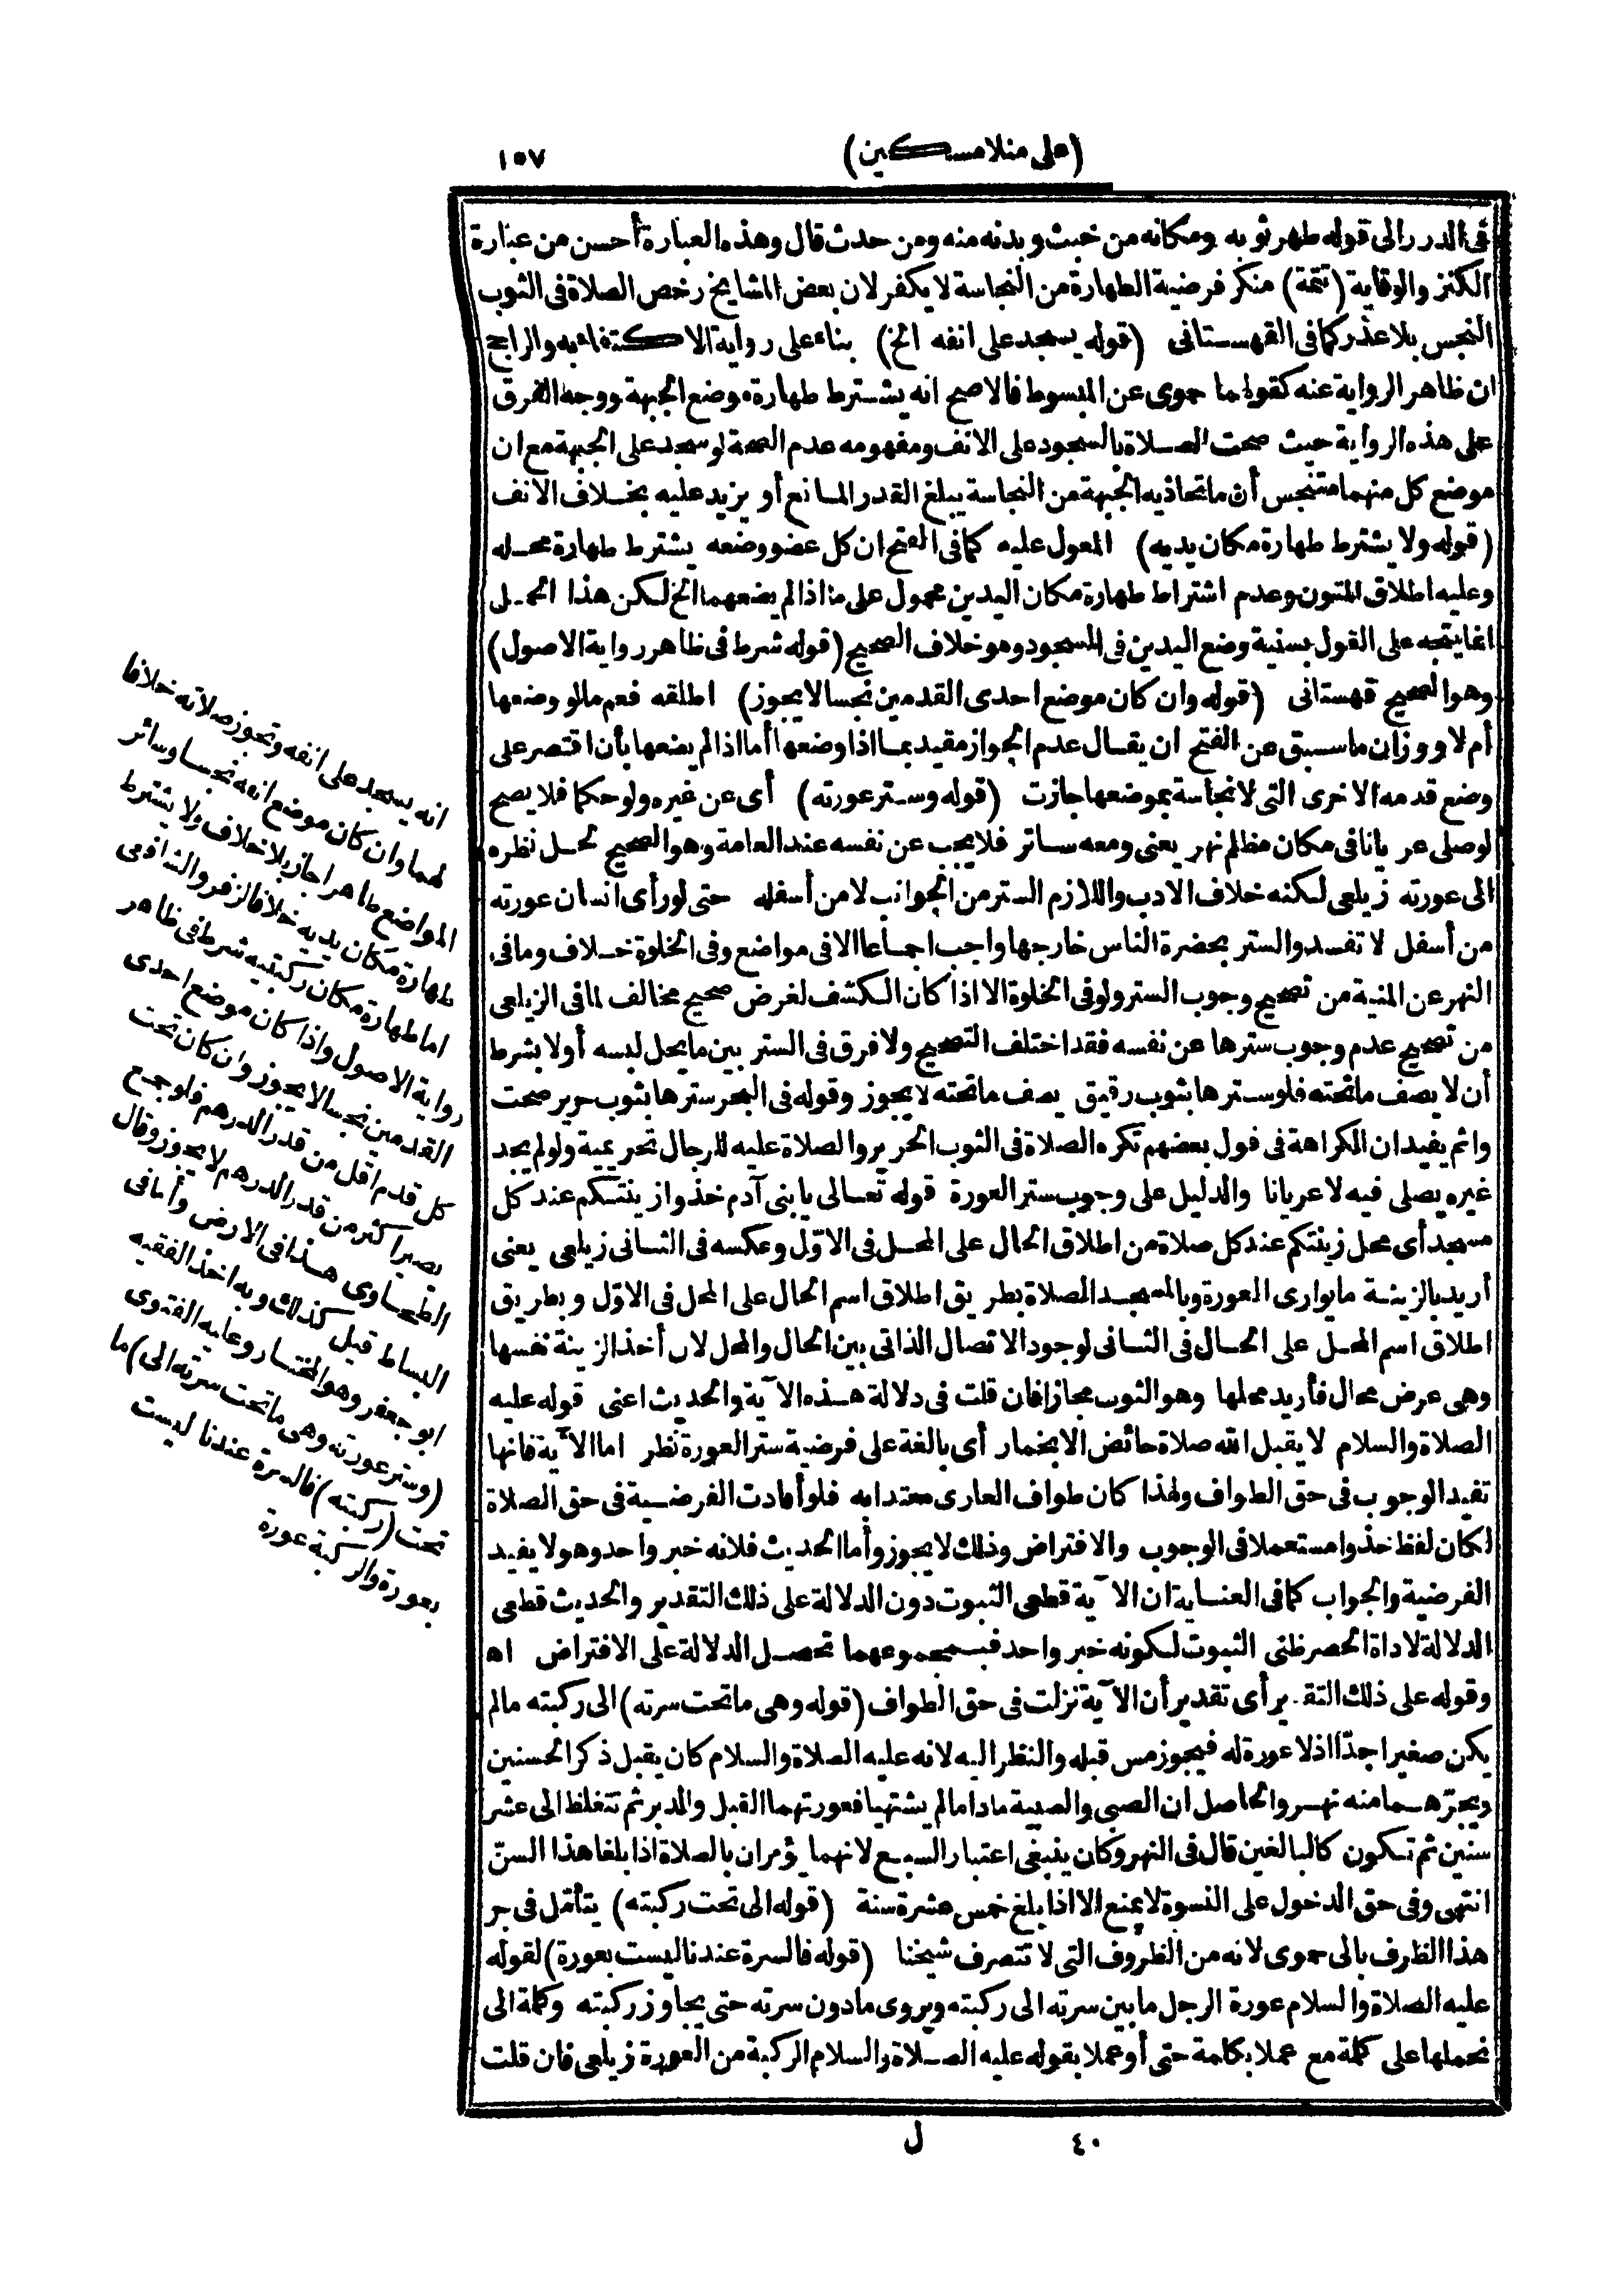 (على منلا مسكين)
١٥٧
فى الدرر الى قوله طهر ثوبه ومكانه من خبث وبدنه منه ومن حدث قال وهذه العبارة أحسن من عبارة
الكنز والوقاية (تتمة) منكر فرضية الطهارة من النجاسة لا يكفر لان بعض المشايخ رخص الصلاة فى الثوب
النجس بلا عذر كما فى القهستانى (قوله يسجد على انفه الخ) بناء على رواية الاكتفاء به والراجح
ان ظاهر الرواية عنه كقولهما حموى عن المبسوط فالاصح انه يشترط طهارة موضع الجبهة ووجه الفرق
على هذه الرواية حيث صحت الصلاة بالسجود على الانف ومفهومه عدم الصحة لو سجد على الجبهة مع ان
موضع كل منهما متنجس أن ما تحاذيه الجبهة من النجاسة يبلغ القدر المانع أو يزيد عليه بخلاف الانف
(قوله ولا يشترط طهارة مكان يديه) المعول عليه كما فى الفتح ان كل عضو وضعه يشترط طهارة محله
وعليه اطلاق المتون وعدم اشتراط طهارة مكان اليدين محمول على ما اذا لم يضعهما الخ لكن هذا الحمل
انما يتجه على القول بسنية وضع اليدين فى السجود وهو خلاف الصحيح (قوله شرط فى ظاهر رواية الاصول)
وهو الصحيح قهستانى (قوله وان كان موضع احدى القدمين نجسا لا يجوز) اطلقه فعم ما لو وضعها
أم لا ووزان ما سبق عن الفتح ان يقال عدم الجواز مقيد بما اذا وضعها أما اذا لم يضعها بأن اقتصر على
وضع قدمه الاخرى التى لا نجاسة بموضعها جازت (قوله وستر عورته) أى عن غيره ولو حكما فلا يصح
لو صلى عريانا فى مكان مظلم نهر يعنى ومعه ساتر فلا يجب عن نفسه عند العامة وهو الصحيح لحل نظره
الى عورته زيلعى لكنه خلاف الادب واللازم الستر من الجوانب لا من أسفله حتى لو رأى انسان عورته
من أسفل لا تفسد والستر بحضرة الناس خارجها واجب اجماعا الا فى مواضع وفى الخلوة خلاف وما فى
النهر عن المنية من تصحيح وجوب الستر ولو فى الخلوة الا اذا كان الكشف لغرض صحيح مخالف لما فى الزيلعى
من تصحيح عدم وجوب سترها عن نفسه فقد اختلف التصحيح ولا فرق فى الستر بين ما يحل لبسه أو لا بشرط
أن لا يصف ما تحته فلو سترها بثوب رقيق يصف ما تحته لا يجوز وقوله فى البحر سترها بثوب حرير صحت
واثم يفيد ان الكراهة فى قول بعضهم تكره الصلاة فى الثوب الحرير والصلاة عليه للرجال تحريمية ولو لم يجد
غيره يصلى فيه لا عريانا والدليل على وجوب ستر العورة قوله تعالى يا بنى آدم خذوا زينتكم عند كل
مسجد أى محل زينتكم عند كل صلاة من اطلاق الحال على المحل فى الاوّل وعكسه فى الثانى زيلعى يعنى
أريد بالزينة ما يوارى العورة وبالمسجد الصلاة بطريق اطلاق اسم الحال على المحل فى الاوّل وبطريق
اطلاق اسم المحل على الحال فى الثانى لوجود الاتصال الذاتى بين الحال والمحل لان أخذ الزينة نفسها
وهى عرض محال فأريد محلها وهو الثوب مجازا فان قلت فى دلالة هذه الآية والحديث اعنى قوله عليه
الصلاة والسلام لا يقبل الله صلاة حائض الا بخمار أى بالغة على فرضية ستر العورة نظر اما الآية فانها
تفيد الوجوب فى حق الطواف ولهذا كان طواف العارى معتدا به فلو أفادت الفرضية فى حق الصلاة
لكان لفظ خذوا مستعملا فى الوجوب والافتراض وذلك لا يجوز وأما الحديث فلانه خبر واحد وهو لا يفيد
الفرضية والجواب كما فى العناية ان الآية قطعى الثبوت دون الدلالة على ذلك التقدير والحديث قطعى
الدلالة لاداة الحصر ظنى الثبوت لكونه خبر واحد فبمجموعهما تحصل الدلالة على الافتراض اه
وقوله على ذلك التقدير أى تقدير أن الآية نزلت فى حق الطواف (قوله وهى ما تحت سرته) الى ركبته ما لم
يكن صغيرا جدّا اذ لا عورة له فيجوز مس قبله والنظر اليه لانه عليه الصلاة والسلام كان يقبل ذكر الحسنين
ويجرّهما منه نهر والحاصل ان الصبى والصبية ما داما لم يشتهيا فعورتهما القبل والدبر ثم تتغلظ الى عشر
سنين ثم تكون كالبالغين قال فى النهر وكان ينبغى اعتبار السبع لانهما يؤمران بالصلاة اذا بلغا هذا السنّ
انتهى وفى حق الدخول على النسوة لا يمنع الا اذا بلغ خمس عشرة سنة (قوله الى تحت ركبته) يتأمّل فى جر
هذا الظرف بالى حموى لانه من الظروف التى لا تتصرف شيخنا (قوله فالسرة عندنا ليست بعورة) لقوله
عليه الصلاة والسلام عورة الرجل ما بين سرته الى ركبته ويروى ما دون سرته حتى يجاوز ركبته وكلمة الى
نحملها على كلمة مع عملا بكلمة حتى أو عملا بقوله عليه الصلاة والسلام الركبة من العورة زيلعى فان قلت
انه يسجد على انفه وتجوز صلاته خلافا
لهما وان كان موضع انفه نجسا وسائر
المواضع طاهرا جاز بلا خلاف ولا يشترط
طهارة مكان يديه خلافا لزفر والشافعى
اما طهارة مكان ركبتيه شرط فى ظاهر
رواية الاصول واذا كان موضع احدى
القدمين نجسا لا يجوز وان كان تحت
كل قدم اقل من قدر الدرهم فلو جمع
يصير اكثر من قدر الدرهم لا يجوز وقال
الطحاوى هذا فى الارض وأما فى
البساط قيل كذلك وبه اخذ الفقيه
ابو جعفر وهو المختار وعليه الفتوى
(وستر عورته وهى ما تحت سرته الى) ما
تحت (ركبته) فالسرة عندنا ليست
بعورة والركبة عورة
٤٠
ل